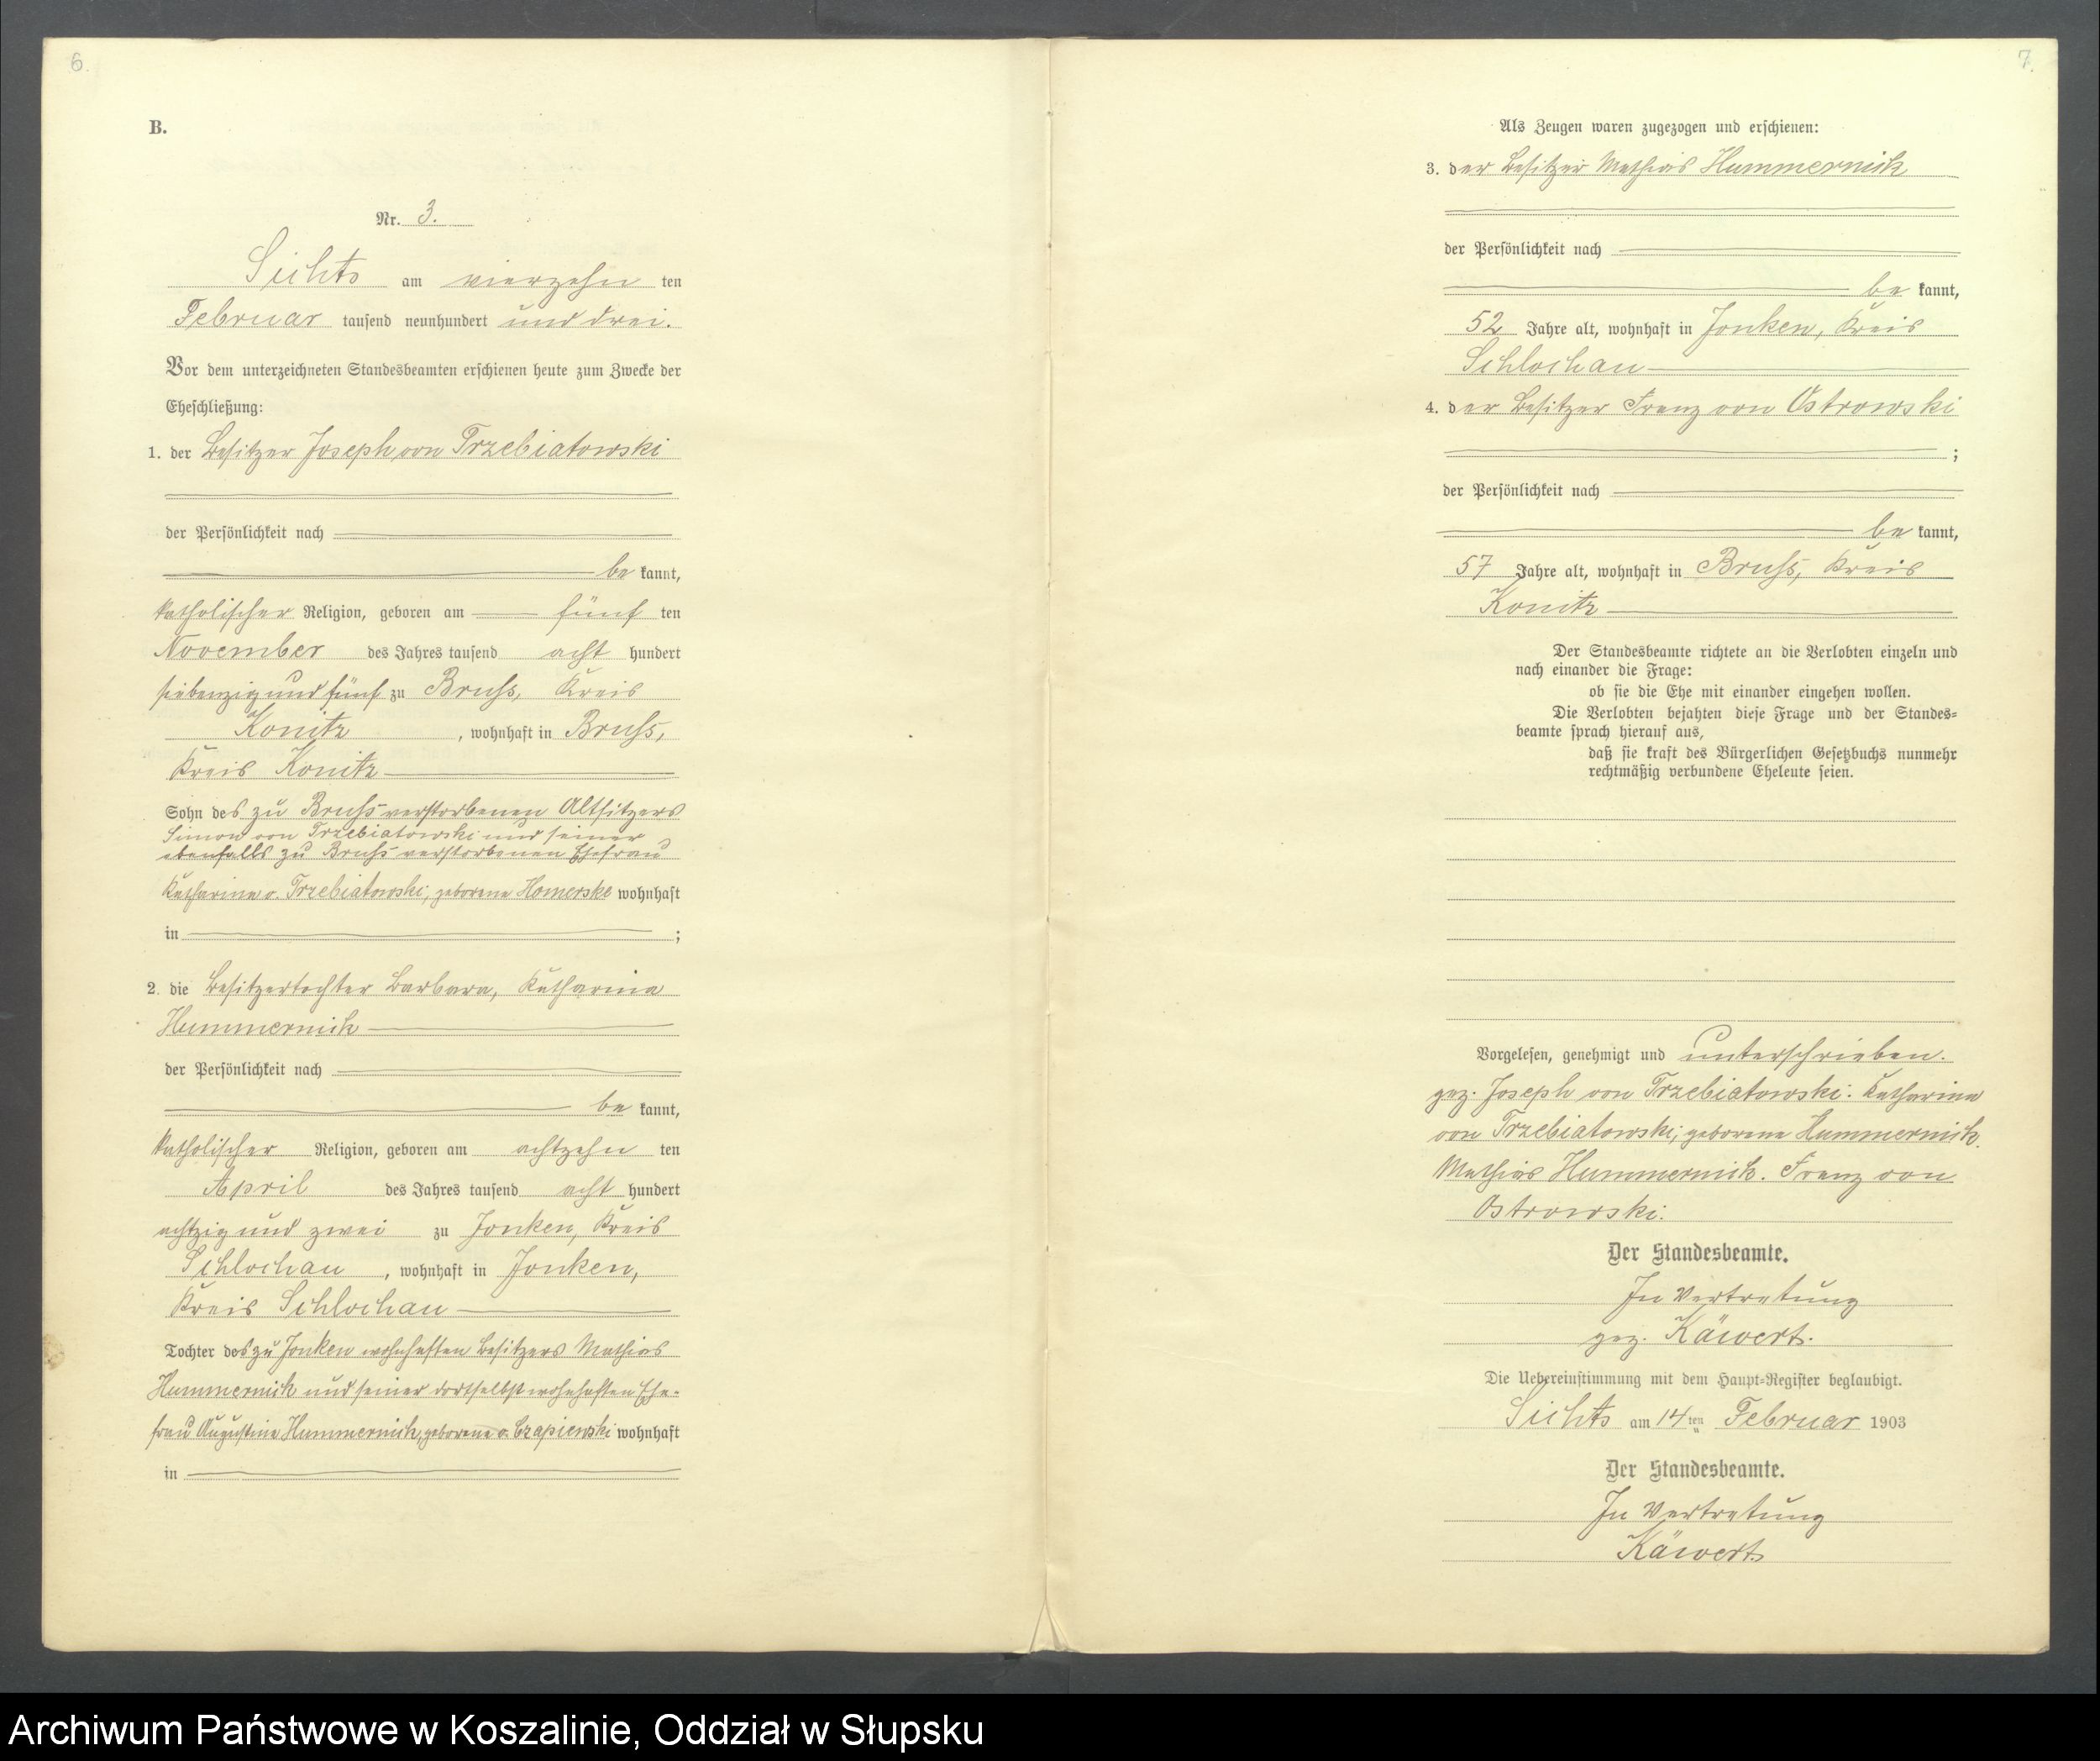 6.
B.
Nr. 3.
Lichts am vierzehn ten
Februar tausend neunhundert und drei.
Vor dem unterzeichneten Standesbeamten erschienen heute zum Zwecke der
Eheschließung:
1. der Besitzer Joseph von Trzebiatowski
der Persönlichkeit nach
be kannt,
katholischer Religion, geboren am fünf ten
November des Jahres tausend acht hundert
siebenzig und fünf zu Bruß, Kreis
Konitz, wohnhaft in Bruß,
Kreis Konitz
Sohn des zu Bruß verstorbenen Altsitzers
Simon von Trzebiatowski und seiner
ebenfalls zu Bruß verstorbenen Ehefrau
Katharina v. Trzebiatowski, geborene Homerske wohnhaft
in ;
2. die Besitzertochter Barbara, Katharina
Hummernick
der Persönlichkeit nach
be kannt,
katholischer Religion, geboren am achtzehn ten
April des Jahres tausend acht hundert
achtzig und zwei zu Jonken, Kreis
Schlochau, wohnhaft in Jonken,
Kreis Schlochau
Tochter des zu Jonken wohnhaften Besitzers Mathias
Hummernick und seiner dortselbst wohnhaften Ehe-
frau Augustina Hummernick, geborene v. Czapiewski wohnhaft
in
7.
Als Zeugen waren zugezogen und erschienen:
3. der Besitzer Mathias Hummernick
der Persönlichkeit nach
be kannt,
52 Jahre alt, wohnhaft in Jonken, Kreis
Schlochau
4. der Besitzer Franz von Ostrowski
;
der Persönlichkeit nach
be kannt,
57 Jahre alt, wohnhaft in Bruß, Kreis
Konitz
Der Standesbeamte richtete an die Verlobten einzeln und
nach einander die Frage:
ob sie die Ehe mit einander eingehen wollen.
Die Verlobten bejahten diese Frage und der Standes=
beamte sprach hierauf aus,
daß sie kraft des Bürgerlichen Gesetzbuchs nunmehr
rechtmäßig verbundene Eheleute seien.
Vorgelesen, genehmigt und unterschrieben.
gez. Joseph von Trzebiatowski. Katharina
von Trzebiatowski, geborene Hummernick.
Mathias Hummernick. Franz von
Ostrowski.
Der Standesbeamte.
In Vertretung
gez. Käwert.
Die Uebereinstimmung mit dem Haupt=Register beglaubigt.
Lichts am 14 ten Februar 1903
Der Standesbeamte.
In Vertretung
Käwert
Archiwum Państwowe w Koszalinie, Oddział w Słupsku